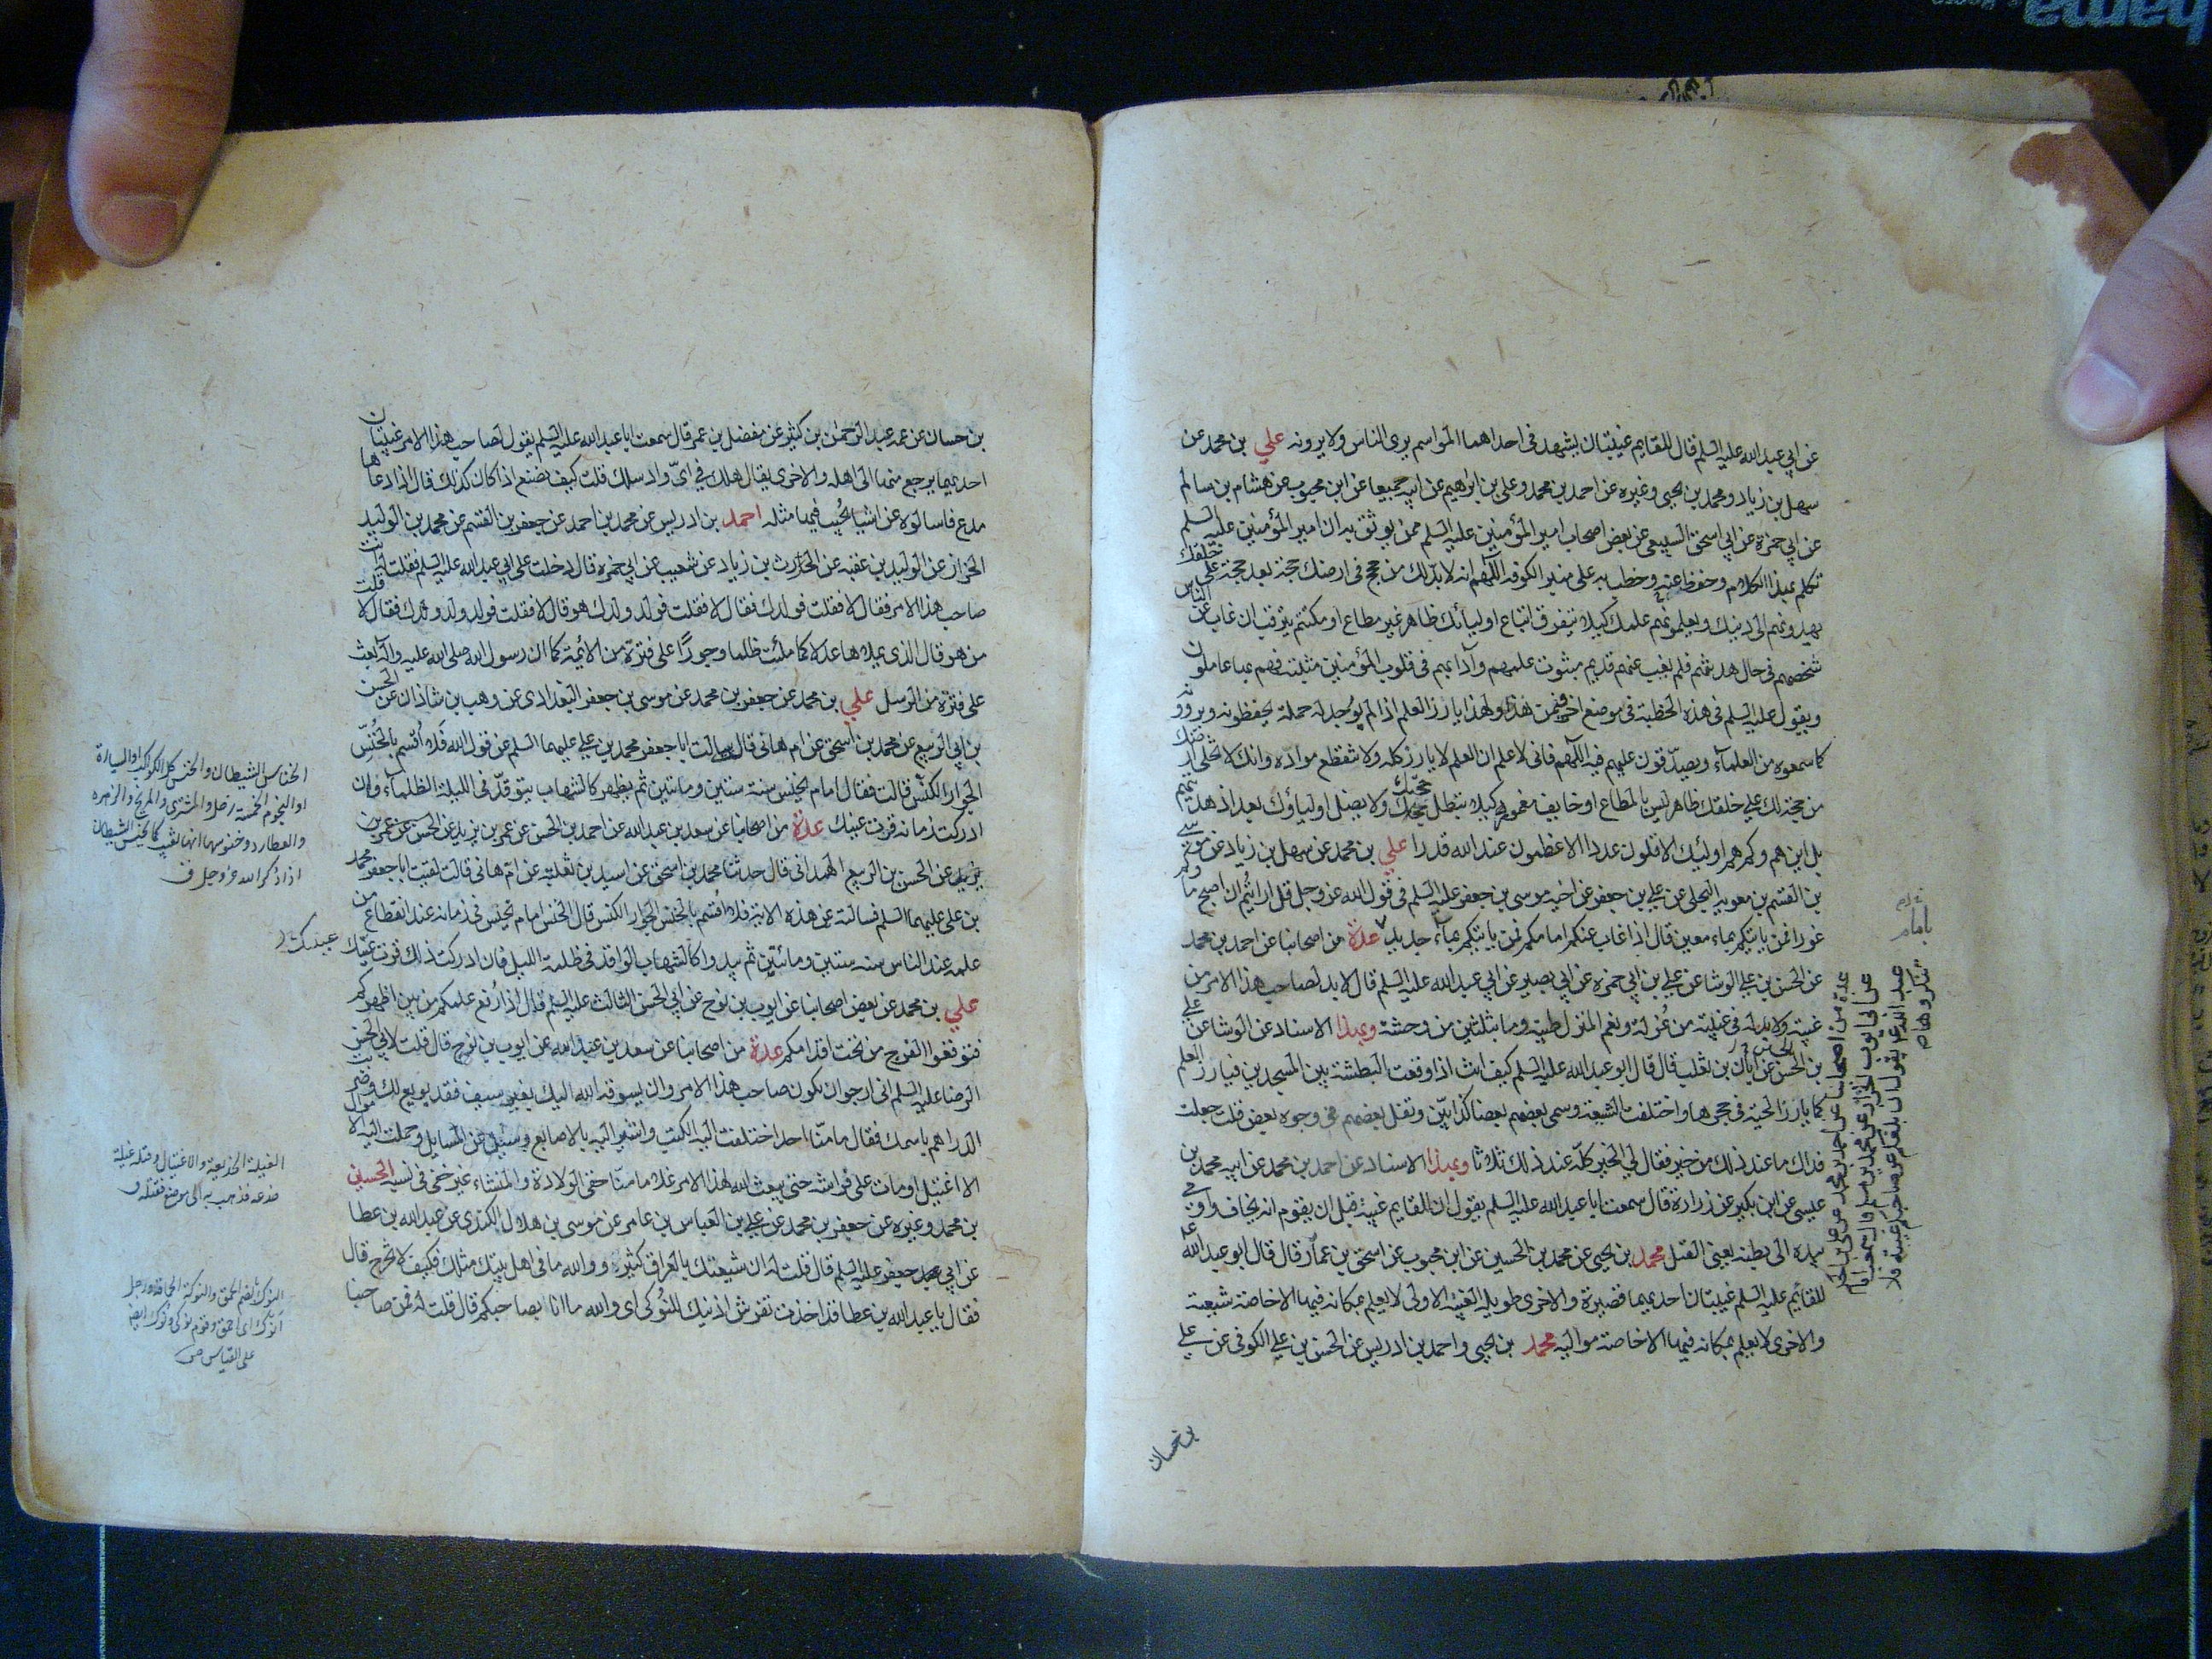 عن ابي عبد الله عليه السلم قال للقايم غيبتان يشهد فى احداهما المواسم يرى الناس ولا يرونه علي بن محمد عن
سهل بن زياد ومحمد بن يحيى وغيره عن احمد بن محمد وعلى بن ابرهيم عن ابيه جميعا عن ابن محبوب عن هشام بن سالم
عن ابي حمزة عن ابي اسحق السبيعى عن بعض اصحاب امير المؤمنين عليه السلم ممن يوثق به ان امير المؤمنين عليه السلم
تكلم بهذا الكلام وحفظ عنه وخطب به على منبر الكوفه اللهم انه لا بد لك من حجج فى ارضك حجة بعد حجة على خلقك
يهدونهم الى دينك ويعلمونهم علمك كيلا يتفرق اتباع اوليائك ظاهر غير مطاع او مكتتم يترقب ان غاب عن الناس
شخصهم فى حال هدنتهم فلم يغب عنهم قديم مبثوث علمهم وآدابهم فى قلوب المؤمنين مثبتة فهم بها عاملون
ويقول عليه السلم فى هذه الخطبة فى موضع اخر فمن هذا ولهذا يارز العلم اذا لم يوجد له حملة يحفظونه ويروونه
كما سمعوه من العلماء ويصدقون عليهم فيه اللهم فانى لاعلم ان العلم لا يارز كله ولا تنقطع مواده وانك لا تخلى ارضك
من حجة لك على خلقك ظاهر ليس بالمطاع او خايف مغمور كيلا يبطل حجتك ولا يضل اولياؤك بعد اذ هديتهم
بل اين هم وكم هم اولئك الاقلون عددا الاعظمون عند الله قدرا علي بن محمد عن سهل بن زياد عن موسى
بن القسم بن معوية البجلى عن علي بن جعفر عن اخيه موسى بن جعفر عليه السلم فى قول الله عز وجل قل ارايتم ان اصبح ماؤكم
غورا فمن ياتيكم بماء معين قال اذا غاب عنكم امامكم فمن ياتيكم بماء جديد عدة من اصحابنا عن احمد بن محمد
عن الحسن بن علي الوشا عن علي بن ابي حمزه عن ابي بصير عن ابي عبد الله عليه السلم قال لا بد لصاحب هذا الامر من
غيبة ولا بد له فى غيبته من عزلة ونعم المنزل طيبة وما بثلثين من وحشة وبهذا الاسناد عن الوشا عن علي
بن الحسن عن ابان بن تغلب قال قال ابو عبد الله عليه السلم كيف انت اذا وقعت البطشة بين المسجدين فيارز العلم
كما يارز الحية فى جحرها واختلفت الشيعة وسمى بعضهم بعضا كذابين وتفل بعضهم فى وجوه بعض قلت جعلت
فداك ما عند ذلك من خير فقال لي الخير كله عند ذلك ثلاثا وبهذا الاسناد عن احمد بن محمد عن ابيه محمد بن
عيسى عن ابن بكير عن زرارة قال سمعت ابا عبد الله عليه السلم يقول ان للقايم غيبة قبل ان يقوم انه يخاف واومى
بيده الى بطنه يعنى القتل محمد بن يحيى عن محمد بن الحسين عن ابن محبوب عن اسحق بن عمار قال قال ابو عبد الله عليه
للقائم عليه السلم غيبتان احديهما قصيرة والاخرى طويلة الغيبة الاولى لا يعلم بمكانه فيها الا خاصة شيعته
والاخرى لا يعلم بمكانه فيها الا خاصة مواليه محمد بن يحيى واحمد بن ادريس عن الحسن بن علي الكوفى عن علي
بن حسان
بامام
عدة من اصحابنا عن احمد بن محمد عن على بن الحكم
عن ابى ايوب الخزاز عن محمد بن مسلم قال سمعت ابا
عبد الله ع يقول ان بلغكم عن صاحبكم غيبة فلا
تنكروها
بن حسان عن عمه عبد الرحمن بن كثير عن مفضل بن عمر قال سمعت ابا عبد الله عليه السلم يقول لصاحب هذا الامر غيبتان
احديهما يرجع منها الى اهله والاخرى يقال هلك فى اى واد سلك قلت كيف نصنع اذا كان كذلك قال اذا ادعاها
مدع فاسالوه عن اشيا يجيب فيها مثله احمد بن ادريس عن محمد بن احمد عن جعفر بن القسم عن محمد بن الوليد
الخزاز عن الوليد بن عقبه عن الحارث بن زياد عن شعيب عن ابي حمزه قال دخلت على ابي عبد الله عليه السلم فقلت له انت
صاحب هذا الامر فقال لا فقلت فولدك فقال لا فقلت فولد ولدك هو قال لا فقلت فولد ولد ولدك فقال لا قلت
من هو قال الذى يملاها عدلا كما ملئت ظلما وجورا على فترة من الائمة كما ان رسول الله صلى الله عليه وآله بعث
على فترة من الرسل علي بن محمد عن جعفر بن محمد عن موسى بن جعفر البغدادى عن وهب بن شاذان عن الحسن
بن ابي الربيع عن محمد بن اسحق عن ام هانى قال سالت ابا جعفر محمد بن علي عليهما السلم عن قول الله فلا اقسم بالخنس
الجوار الكنس قالت فقال امام يخنس سنة ستين وماتين ثم يظهر كالشهاب يتوقد فى الليلة الظلماء وان
ادركت زمانه قرت عينك عدة من اصحابنا عن سعد بن عبد الله عن احمد بن الحسن عن عمر بن يزيد عن الحسن عن عمر بن
يزيد عن الحسن بن الربيع الهمدانى قال حدثنا محمد بن اسحق عن اسيد بن ثعلبه عن ام هانى قالت لقيت ابا جعفر محمد
بن على عليهما السلم فسالته عن هذه الاية فلا اقسم بالخنس الجوار الكنس قال الخنس امام يخنس فى زمانه عند انقطاع من
علمه عند الناس سنه ستين ومائتين ثم يبدوا كالشهاب الواقد فى ظلمة الليل فان ادركت ذلك قرت عينك
علي بن محمد عن بعض اصحابنا عن ايوب بن نوح عن ابي الحسن الثالث عليه السلم قال اذا رفع علمكم من بين اظهركم
فتوقعوا الفرج من تحت اقدامكم عدة من اصحابنا عن سعد بن عبد الله عن ايوب بن نوح قال قلت لابي الحسن
الرضا عليه السلم انى ارجو ان يكون صاحب هذا الامر وان يسوقه الله اليك بغير سيف فقد بويع لك وضربت
الدراهم باسمك فقال ما منا احد اختلفت اليه الكتب واشير اليه بالاصابع وسئل عن المسايل وحملت اليه الاموال
الا اغتيل او مات على فراشه حتى يبعث الله لهذا الامر غلاما منا خفى الولادة والمنشاء غير خفى فى نسبه الحسين
بن محمد وغيره عن جعفر بن محمد عن علي بن العباس بن عامر عن موسى بن هلال الكندى عن عبد الله بن عطا
عن ابي جعفر عليه السلم قال قلت له ان شيعتك بالعراق كثيرة ووالله ما فى اهل بيتك مثلك فكيف لا تخرج قال
فقال يا عبد الله بن عطا قد اخذت تفرش اذنيك للنوكى اى والله ما انا بصاحبكم قال قلت له فمن صاحبنا
الخناس الشيطان والخنس الكواكب كلها او السيارة
او النجوم الخمسة زحل والمشترى والمريخ والزهره
والعطارد وخنوسها انها تغيب كما يخنس الشيطان
اذا ذكر الله عز وجل ق
عينك
الغيلة الخديعة والاغتيال وقتله غيلة
خدعه فذهب به الى موضع فقتله ق
النوك بالضم الحمق والنوكة الحماقة ورجل
انوك اى احمق وقوم نوكى ونوك ايضا
على القياس ص
hama